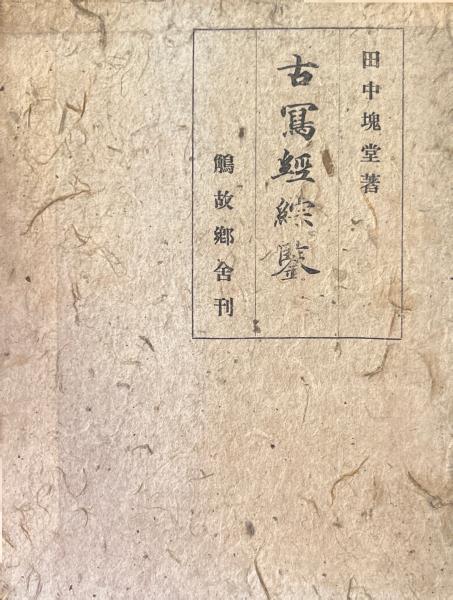 田中塊堂著
古寫經綜鑒
鵤故郷舍刊